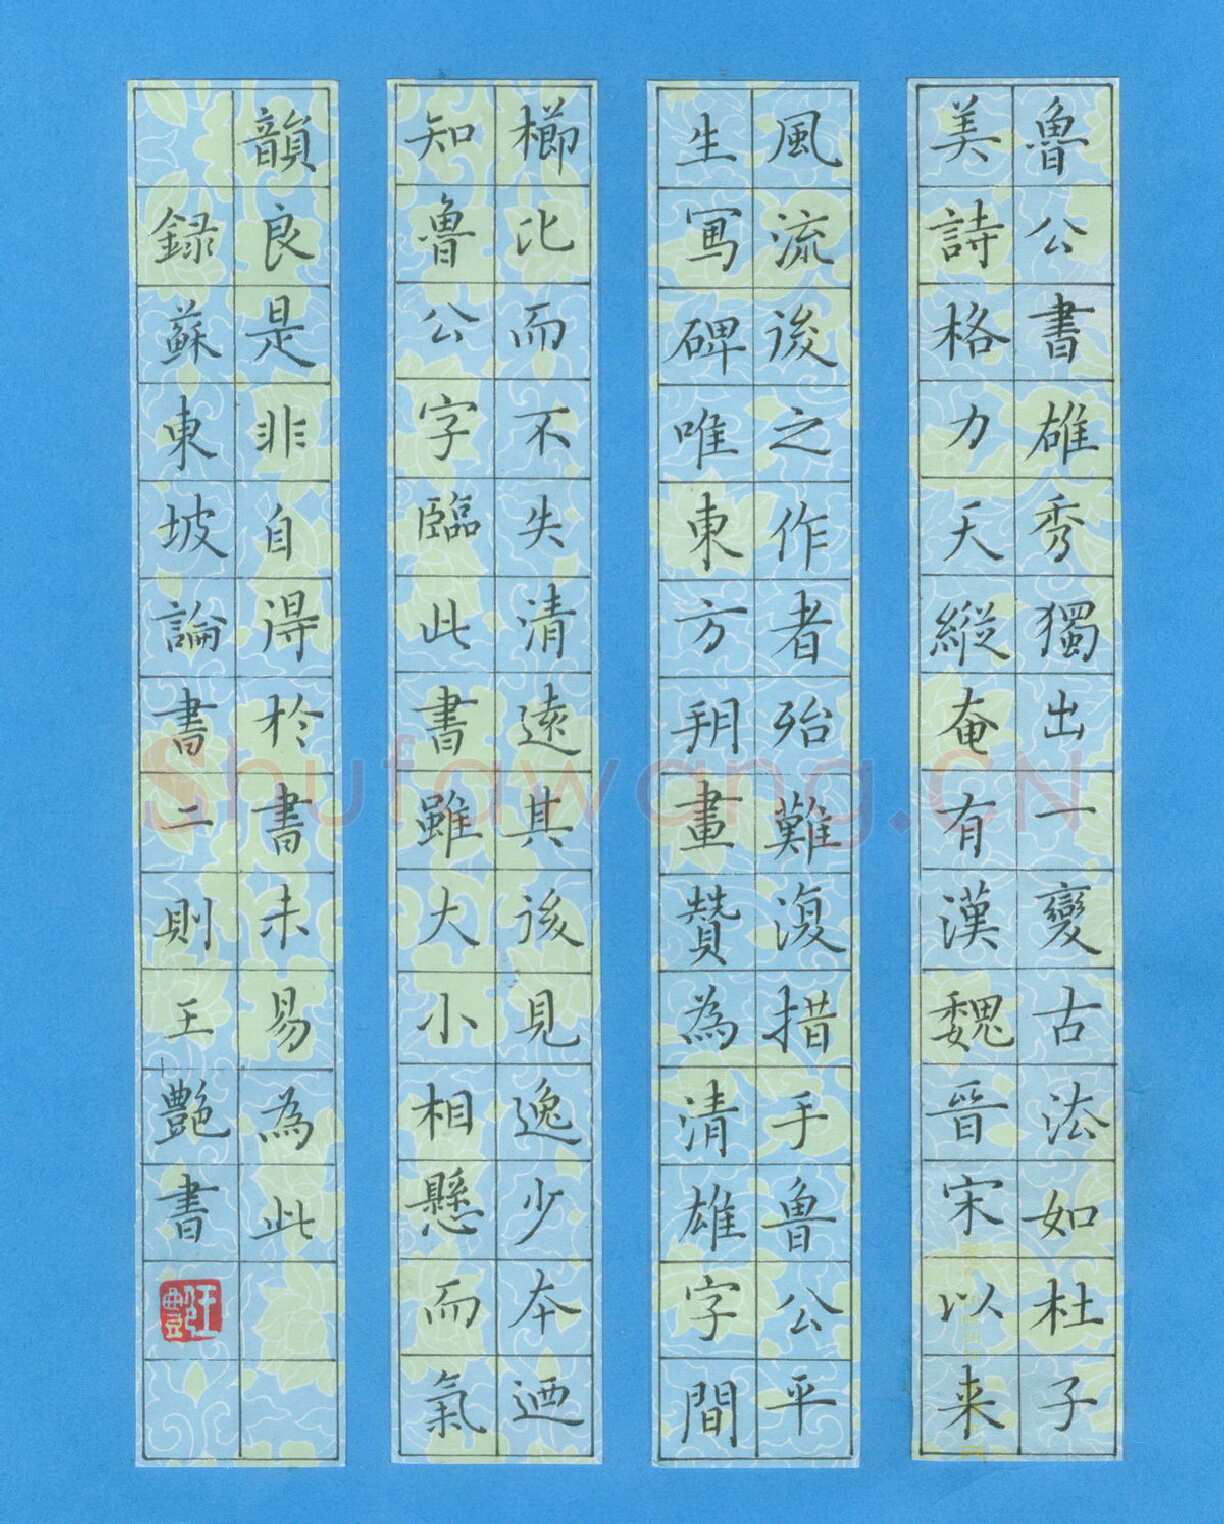 魯公書雄秀獨出一變古法如杜子
美詩格力天縱奄有漢魏晉宋以来
風流後之作者殆難復措手魯公平
生冩碑唯東方朔畫贊為清雄字間
櫛比而不失清遠其後見逸少本迺
知魯公字臨此書雖大小相懸而氣
韻良是非自得於書未易為此
録蘇東坡論書二則王艷書
Shufawang.CN